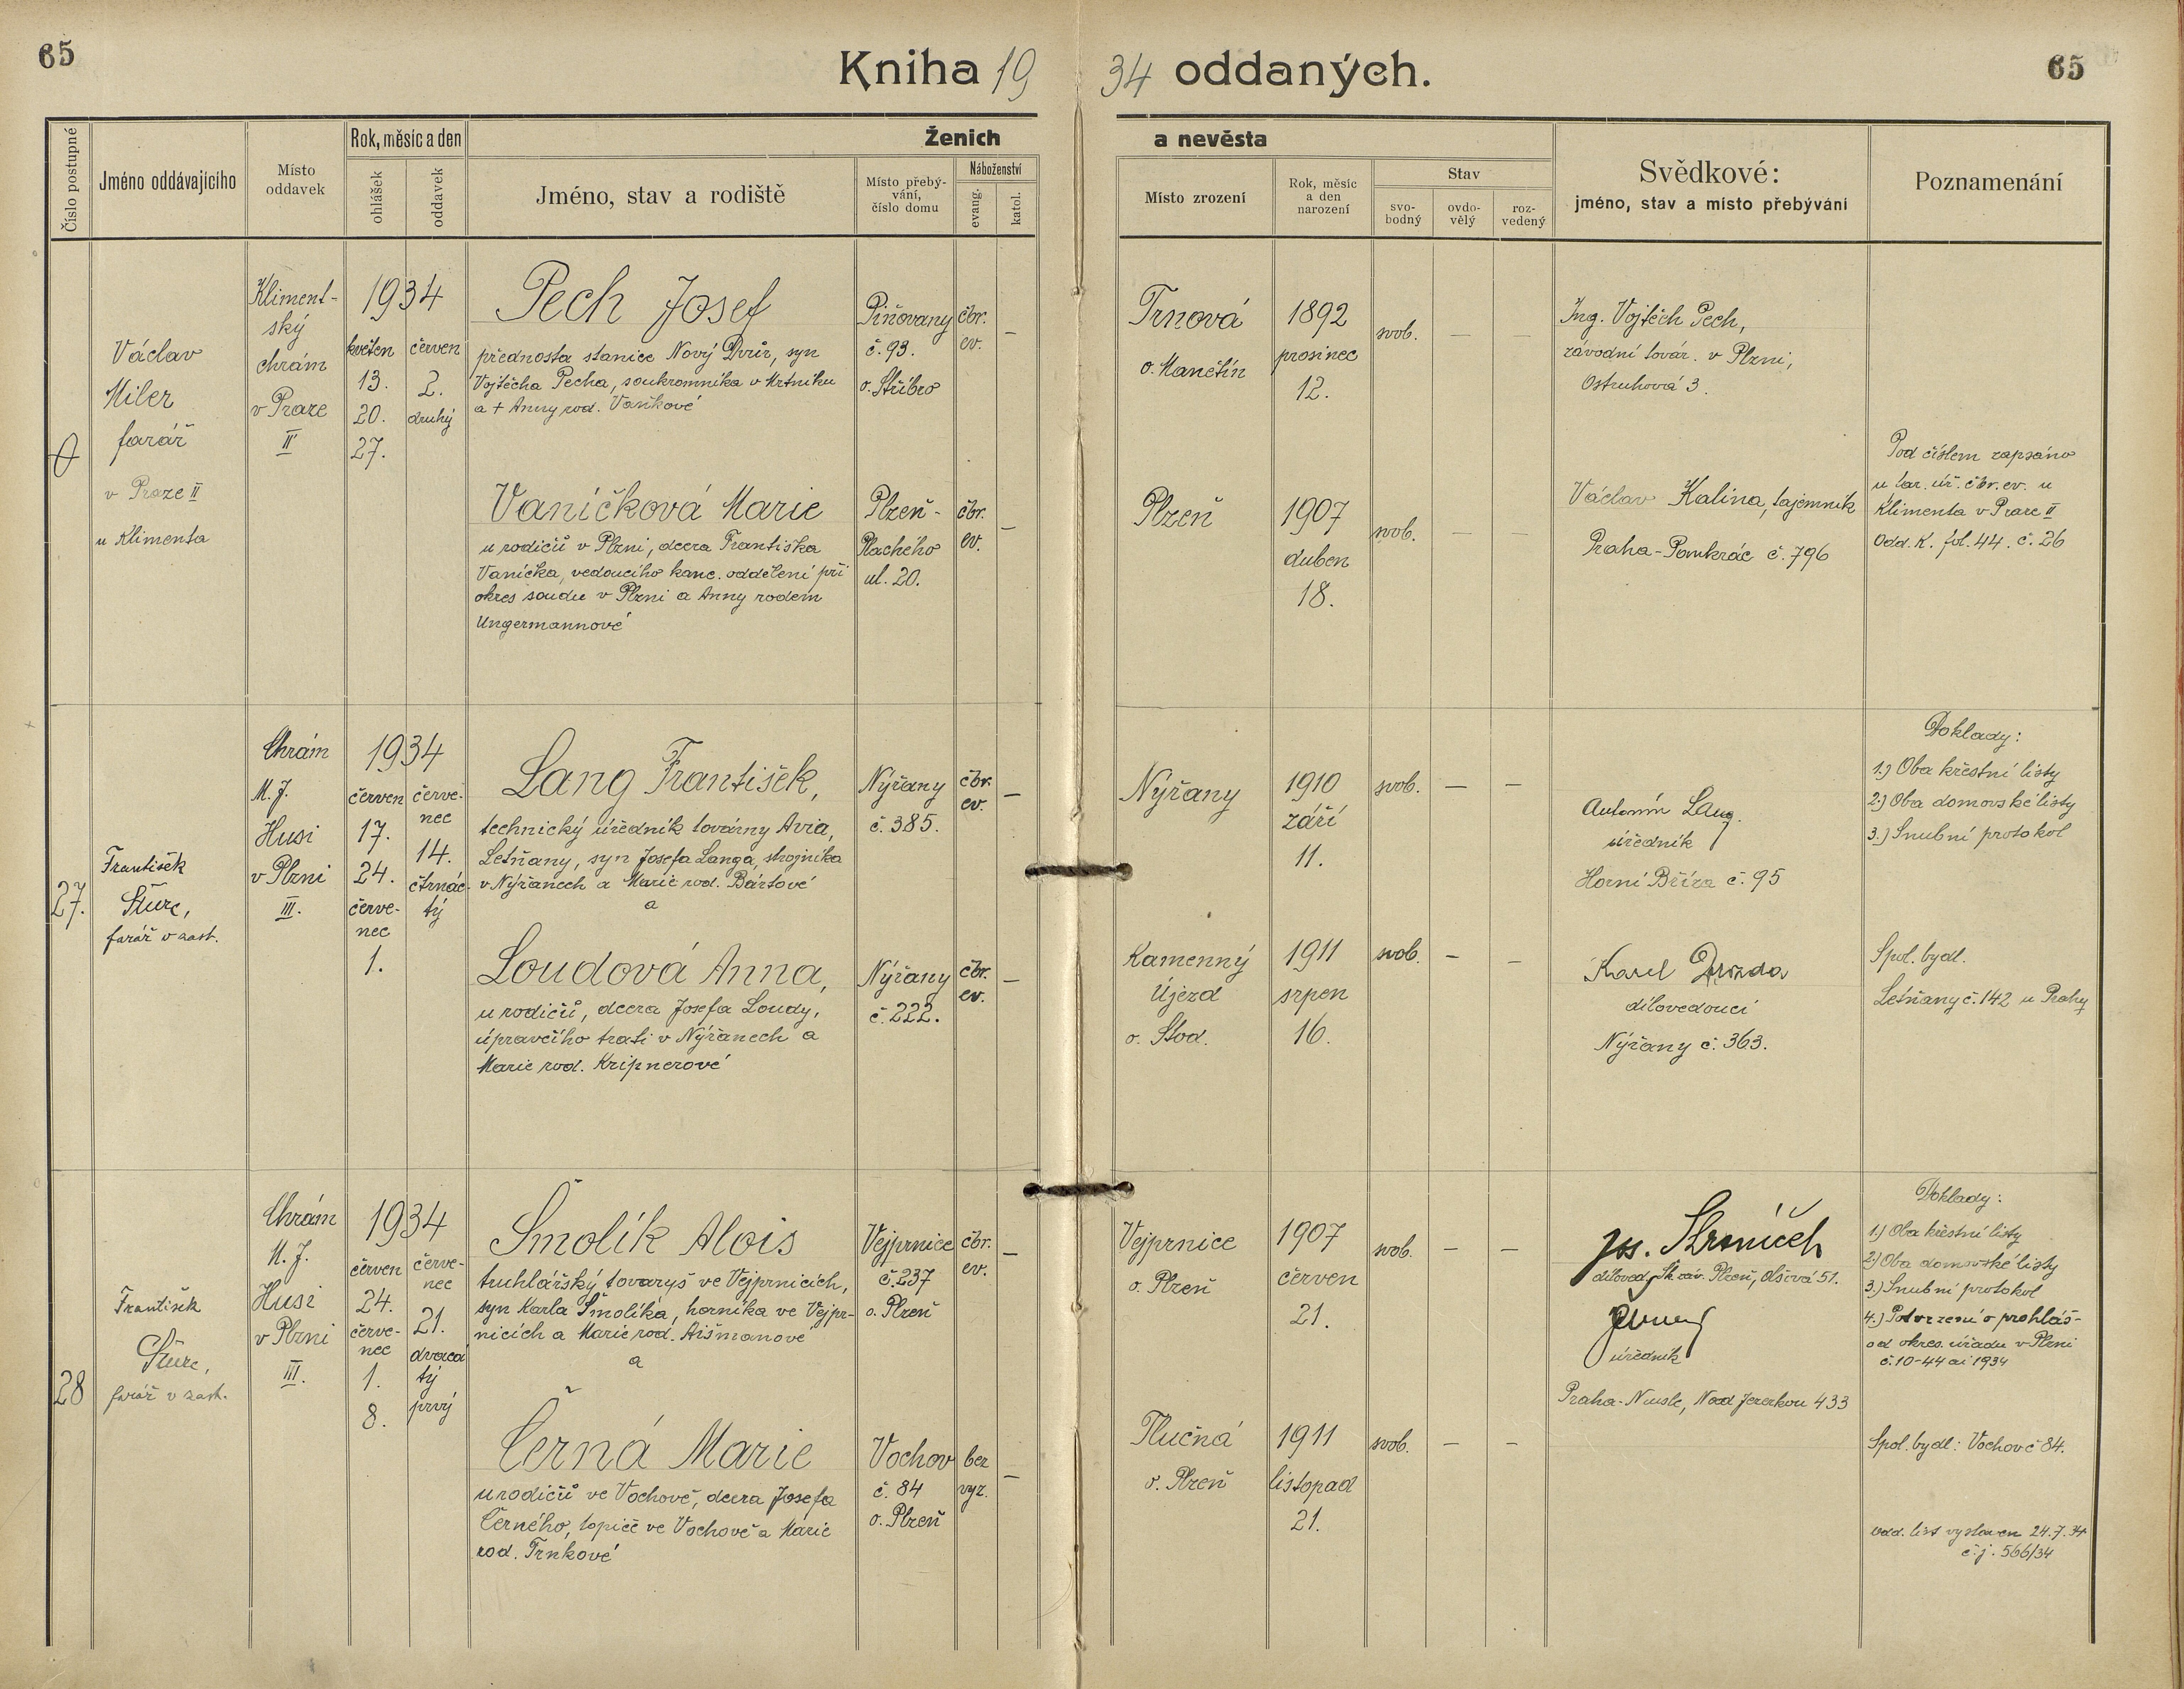 65
Kniha 1934 oddaných.
65
Číslo postupné
Jméno oddávajícího
Místo oddavek
Rok, měsíc a den
ohlášek
oddavek
Ženich a nevěsta
Jméno, stav a rodiště
Místo přebývání, číslo domu
Náboženství
evang.
katol.
Místo zrození
Rok, měsíc a den narození
Stav
svobodný
ovdovělý
rozvedený
Svědkové:
jméno, stav a místo přebývání
Poznamenání
Václav
Miler
farář
v Praze II
u Klimenta
Kliment-
ský
chrám
v Praze
II
1934
květen
13.
20.
27.
červen
2.
druhý
Pech Josef
přednosta stanice Nový Dvůr, syn
Vojtěcha Pecha, soukromníka v Mrtníku
a + Anny rod. Vaňkové
Piňovany
č. 93.
o. Stříbro
čbr.
ev.
–
Trnová
o. Manětín
1892
prosinec
12.
svob.
–
–
Ing. Vojtěch Pech,
závodní továr. v Plzni,
Ostruhová 3.
Vaníčková Marie
u rodičů v Plzni, dcera Františka
Vaníčka, vedoucího kanc. oddělení při
okres soudu v Plzni a Anny rodem
Ungermannové
Plzeň -
Plachého
ul. 20.
čbr.
ev.
–
Plzeň
1907
duben
18.
svob.
–
–
Václav Kalina, tajemník
Praha-Pankrác č. 796
Pod číslem zapsáno
u far. úř. čbr. ev. u
Klimenta v Praze II
Odd. K. fol. 44. č. 26
27.
František
Šturc,
farář v zast.
Chrám
M. J.
Husi
v Plzni
III.
1934
červen
17.
24.
červe-
nec
1.
červe-
nec
14.
čtrnác-
tý
Lang František,
technický úředník továrny Avia,
Letňany, syn Josefa Langa, strojníka
v Nýřanech a Marie rod. Bártové
a
Nýřany
č. 385.
čbr.
ev.
–
Nýřany
1910
září
11.
svob.
–
–
Antonín Lang.
úředník
Horní Bříza č. 95
Doklady:
1.) Oba křestní listy
2.) Oba domovské listy
3.) Snubní protokol
Loudová Anna,
u rodičů, dcera Josefa Loudy,
úpravčího trati v Nýřanech a
Marie rod. Kripnerové
Nýřany
č. 222.
čbr.
ev.
–
Kamenný
Újezd
o. Stod.
1911
srpen
16.
svob.
–
–
Karel Drozda
dílovedoucí
Nýřany č. 363.
Spol. bydl.
Letňany č. 142 u Prahy
28
František
Šturc,
farář v zast.
Chrám
M. J.
Husi
v Plzni
III.
1934
červen
24.
červe-
nec
1.
8.
červe-
nec
21.
dvacá
tý
prvý
Šmolík Alois
truhlářský tovaryš ve Vejprnicích,
syn Karla Šmolíka, horníka ve Vejpr-
nicích a Marie rod. Aišmanové
a
Vejprnice
č. 237
o. Plzeň
čbr.
ev.
–
Vejprnice
o. Plzeň
1907
červen
21.
svob.
–
–
Jos.
díloved. Šk. záv. Plzeň, Olšová 51.
úředník
Praha-Nusle, Nad Jezerkou 433
Doklady:
1.) Oba křestní listy
2.) Oba domovské listy
3.) Snubní protokol
4.) Potvrzení o prohláš-
od okres. úřadu v Plzni
č. 10-44 ai 1934
Černá Marie
u rodičů ve Vochově, dcera Josefa
Černého, topiče ve Vochově a Marie
rod. Trnkové
Vochov
č. 84
o. Plzeň
bez
vyz.
–
Tlučná
o. Plzeň
1911
listopad
21.
svob.
–
–
Spol. bydl: Vochov č 84.
odd. list vystaven 24.7.34
č.j. 566/34